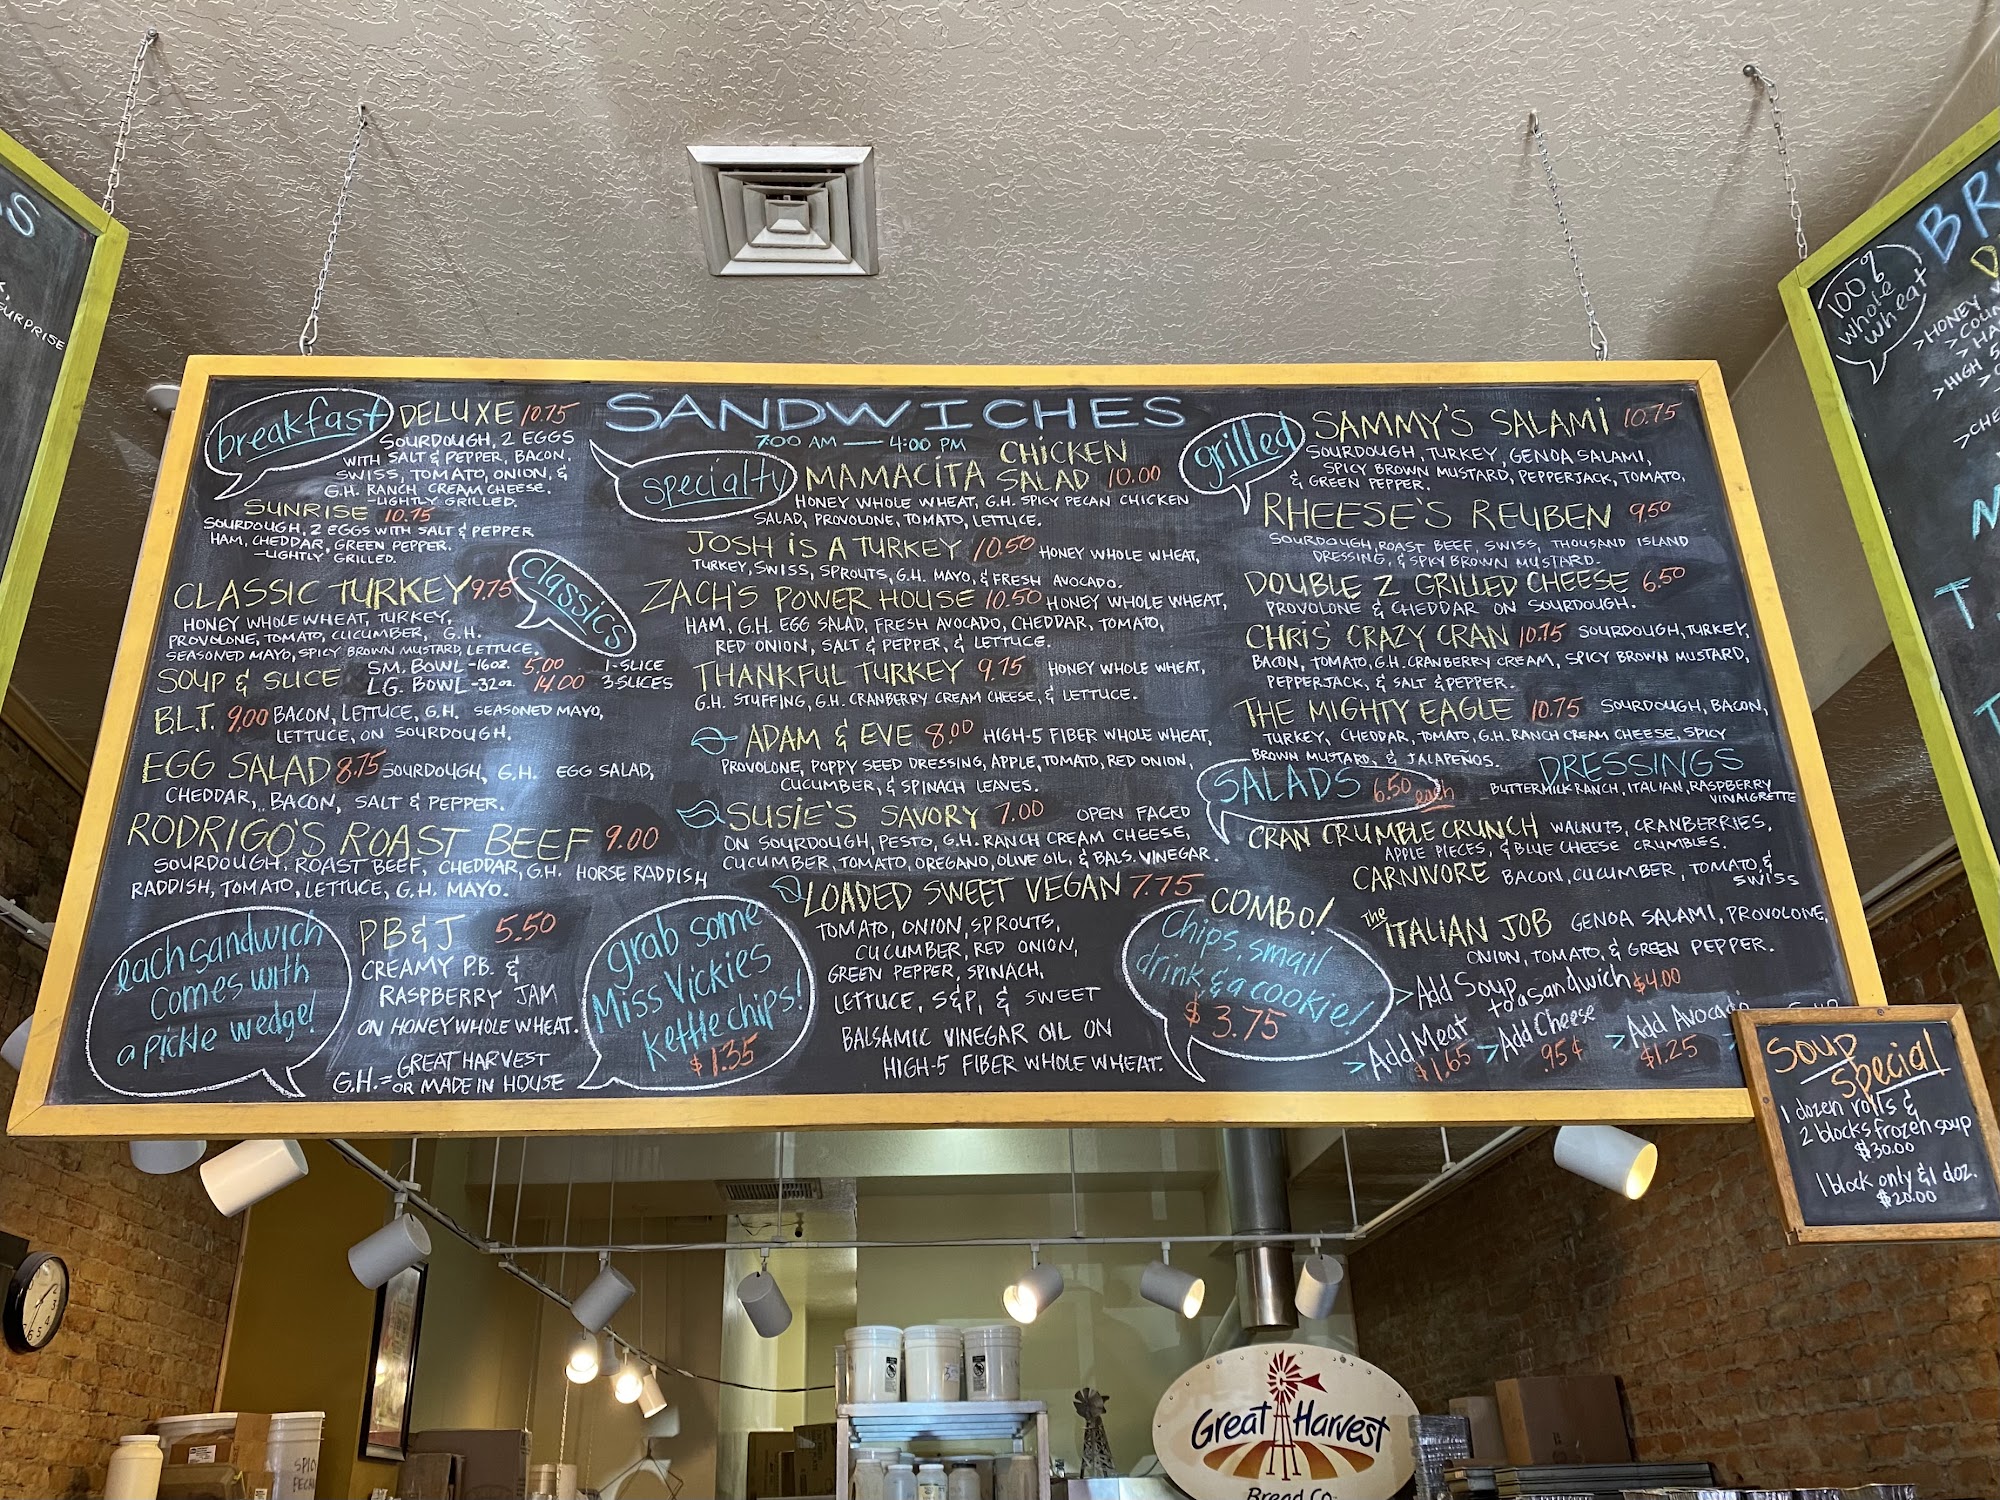 SANDWICHES
7:00 AM — 4:00 PM
breakfast
DELUXE 10.75
SOURDOUGH, 2 EGGS
WITH SALT & PEPPER, BACON,
SWISS, TOMATO, ONION, &
G.H. RANCH CREAM CHEESE.
-LIGHTLY GRILLED.
SUNRISE 10.75
SOURDOUGH, 2 EGGS WITH SALT & PEPPER
HAM, CHEDDAR, GREEN PEPPER.
-LIGHTLY GRILLED.
classics
CLASSIC TURKEY 9.75
HONEY WHOLE WHEAT, TURKEY,
PROVOLONE, TOMATO, CUCUMBER, G.H.
SEASONED MAYO, SPICY BROWN MUSTARD, LETTUCE.
SOUP & SLICE SM. BOWL -16oz. 5.00 1-SLICE
LG. BOWL -32oz. 14.00 3-SLICES
B.L.T. 9.00 BACON, LETTUCE, G.H. SEASONED MAYO,
LETTUCE, ON SOURDOUGH.
EGG SALAD 8.75 SOURDOUGH, G.H. EGG SALAD,
CHEDDAR, BACON, SALT & PEPPER.
RODRIGO'S ROAST BEEF 9.00
SOURDOUGH, ROAST BEEF, CHEDDAR, G.H. HORSE RADDISH
RADDISH, TOMATO, LETTUCE, G.H. MAYO.
each sandwich
comes with
a pickle wedge!
PB&J 5.50
CREAMY P.B. &
RASPBERRY JAM
ON HONEY WHOLE WHEAT.
G.H.= GREAT HARVEST
OR MADE IN HOUSE
grab some
Miss Vickies
kettle chips!
$1.35
specialty
MAMACITA CHICKEN
SALAD 10.00
HONEY WHOLE WHEAT, G.H. SPICY PECAN CHICKEN
SALAD, PROVOLONE, TOMATO, LETTUCE.
JOSH IS A TURKEY 10.50 HONEY WHOLE WHEAT,
TURKEY, SWISS, SPROUTS, G.H. MAYO, & FRESH AVOCADO.
ZACH'S POWER HOUSE 10.50 HONEY WHOLE WHEAT,
HAM, G.H. EGG SALAD, FRESH AVOCADO, CHEDDAR, TOMATO,
RED ONION, SALT & PEPPER, & LETTUCE.
THANKFUL TURKEY 9.75 HONEY WHOLE WHEAT,
G.H. STUFFING, G.H. CRANBERRY CREAM CHEESE, & LETTUCE.
ADAM & EVE 8.00 HIGH-5 FIBER WHOLE WHEAT,
PROVOLONE, POPPY SEED DRESSING, APPLE, TOMATO, RED ONION,
CUCUMBER, & SPINACH LEAVES.
SUSIE'S SAVORY 7.00 OPEN FACED
ON SOURDOUGH, PESTO, G.H. RANCH CREAM CHEESE,
CUCUMBER, TOMATO, OREGANO, OLIVE OIL, & BALS. VINEGAR.
LOADED SWEET VEGAN 7.75
TOMATO, ONION, SPROUTS,
CUCUMBER, RED ONION,
GREEN PEPPER, SPINACH,
LETTUCE, S&P, & SWEET
BALSAMIC VINEGAR OIL ON
HIGH-5 FIBER WHOLE WHEAT.
grilled
SAMMY'S SALAMI 10.75
SOURDOUGH, TURKEY, GENOA SALAMI,
SPICY BROWN MUSTARD, PEPPERJACK, TOMATO,
& GREEN PEPPER.
RHEESE'S REUBEN 9.50
SOURDOUGH, ROAST BEEF, SWISS, THOUSAND ISLAND
DRESSING, & SPICY BROWN MUSTARD.
DOUBLE Z GRILLED CHEESE 6.50
PROVOLONE & CHEDDAR ON SOURDOUGH.
CHRIS' CRAZY CRAN 10.75 SOURDOUGH, TURKEY,
BACON, TOMATO, G.H. CRANBERRY CREAM, SPICY BROWN MUSTARD,
PEPPERJACK, & SALT & PEPPER.
THE MIGHTY EAGLE 10.75 SOURDOUGH, BACON,
TURKEY, CHEDDAR, TOMATO, G.H. RANCH CREAM CHEESE, SPICY
BROWN MUSTARD, & JALAPEÑOS.
SALADS 6.50 each
DRESSINGS
BUTTERMILK RANCH, ITALIAN, RASPBERRY
VINAIGRETTE
CRAN CRUMBLE CRUNCH WALNUTS, CRANBERRIES,
APPLE PIECES, & BLUE CHEESE CRUMBLES.
CARNIVORE BACON, CUCUMBER, TOMATO, &
SWISS
The ITALIAN JOB GENOA SALAMI, PROVOLONE,
ONION, TOMATO, & GREEN PEPPER.
COMBO!
Chips, small
drink, & a cookie!
$3.75
>Add Soup
to a Sandwich $4.00
>Add Meat
$1.65
>Add Cheese
.95¢
>Add Avocado
$1.25
Soup
Special
1 dozen rolls &
2 blocks frozen soup
$30.00
1 block only & 1 doz.
$20.00
S
SURPRISE
100%
whole
wheat
BR
>HONEY
>HIGH 5
>CHE
Great Harvest
Bread Co.